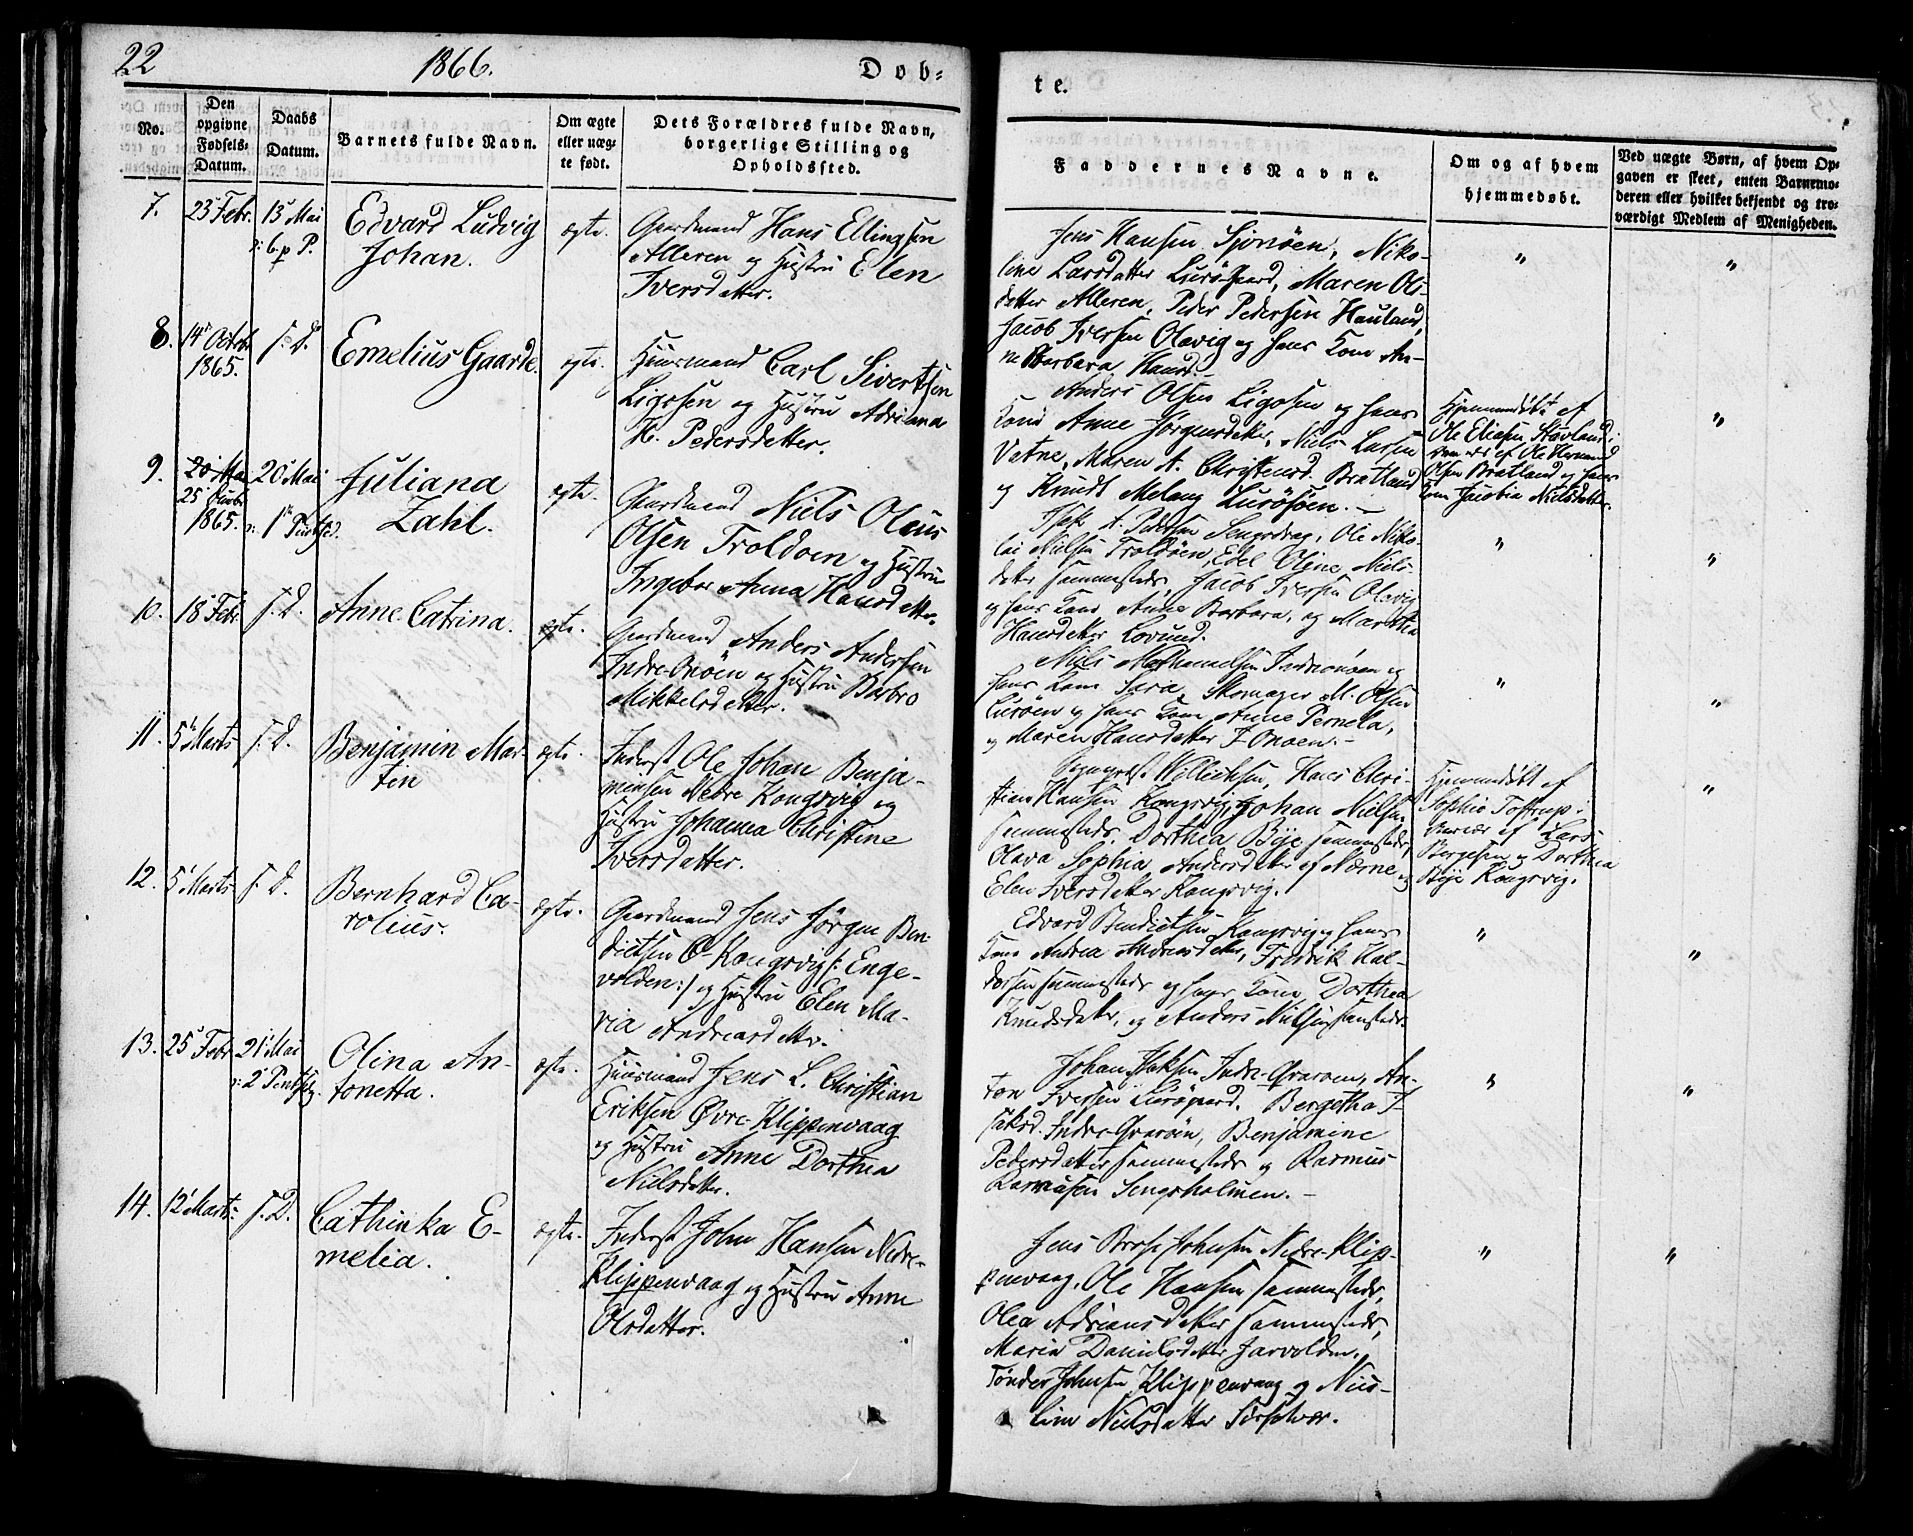 22
1866.
Døb-
te.
No.
Den opgivne Fødsels-Datum.
Daabs Datum.
Barnets fulde Navn.
Om ægte eller uæg-te født.
Dets Forældres fulde Navn, borgerlige Stilling og Opholdssted.
Faddernes Navne.
Om og af hvem hjemmedøbt.
Ved uægte Børn, af hvem Op-gaven er skeet, enten Barnemo-deren eller hvilket bekjendt og tro-værdigt Medlem af Menigheden.
7.
23 Febr.
13 Mai
6 p P.
Edvard Ludvig
Johan.
ægte.
Gaardmand Hans Ellingsen
Alleren og Hustru Elen
Iversdatter.
Jens Hansen Sjonøen, Niko-
line Larsdatter Lurøgaard, Maren Ols-
datter Alleren, Peder Pedersen Hauland,
Jacob Iversen Olavig og hans Kone An-
ne Barbara Hansd.
"
"
8.
14 Octobr
1865.
s. D.
Emelius Gaarde.
ægte.
Huusmand Carl Sivertsen
Ligosen og Hustru Adriana
H. Pedersdatter.
Anders Olsen Ligosen og hans
Kone Anne Jørgensdatter, Niels Larsen
Vatne, Maren A. Christensd. Bratland
og Knudt Melang Lurøsøen.
Hjemmedøbt af
Ole Eliasen Stovland i
nærvær af Ole Herman
Olsen Bratland og hans
Kone Jacobia Nielsdatter.
"
9.
20 Mai
25
1865.
20 Mai
1 Pintsed.
Juliana
Zahl.
ægte.
Gaardmand Niels Olaus
Olsen Troldøen og Hustru
Ingebor Anna Hansdatter.
A. Pedersen Sengsdrag, Ole Niko-
lai Nielsen Troldøen, Edel Oline Niels-
datter sammesteds, Jacob Iversen Olavig
og hans Kone Anne Barbara, og Martha
Hansdatter Lovund.
"
"
10.
18 Febr.
s. D.
Anne Catrina.
ægte.
Gaardmand Anders Andersen
Indre Onøen og Hustru Barbro
Mikkelsdatter.
Niels Indreonøen og
hans Kone Sara, Skomager M. Olsen
Lurøen og hans Kone Anne Pernela,
og Maren Hansdatter I Onøen.
"
"
11.
5 Marts
s. D.
Benjamin Mar-
tin
ægte.
Inderst Ole Johan Benja-
minsen Nedre Kongsvig og
Hustru Johanna Christine
Iversdatter.
Willichsen, Hans Chri-
stian Hansen Kongsvig, Johan Nielsen
sammesteds, Dorthea Bye sammesteds,
Olava Sophia Andersdatter af Nærne og
Elen Iversdatter Kongsvig.
Hjemmedøbt af
Sophie Toftrup i
nærvær af Lars
Bergesen og Dorthea
Bye Kongsvig.
"
12.
5 Marts
s. D.
Bernhard Ca-
rolius.
ægte.
Gaardmand Jens Jørgen Ben-
dictsen Ø-Kongsvig /: Enge-
volden :/ og Hustru Elen Ma-
ria Andreasdatter.
Edvard Bendictsen Kongsvig og hans
Kone Andrea Andreasdatter, Fredrik Hal-
dorsen sammesteds og hans Kone Dorthea
Knudsdatter, og Anders Nielsen sammesteds.
"
"
13.
25 Febr
21 Mai
2 Pentsdg.
Olina An-
tonetta.
ægte.
Huusmand Jens L. Christian
Eriksen Øvre Klippenvaag
og Hustru Anne Dorthea
Nielsdatter.
Johan Isaksen Indre-Qvarøen, An-
ton Iversen Lurøgaard, Bergetha I-
saksd. Indre-Qvarøen, Benjamine
Pedersdatter sammesteds og Rasmus
Rasmusen Sengsholmen.
"
"
14.
12 Marts
s. D.
Cathinka E-
melia.
ægte.
Inderst John Hansen Nedre-
Klippenvaag og Hustru Anne
Olsdatter.
Jens Johnsen Nedre-Klip-
penvaag, Ole Hansen sammesteds,
Olea Adriansdatter sammesteds,
Maria Danielsdatter Jarvolden,
Tønder Johnsen Klippenvaag og Nils-
line Nielsdatter
"
"